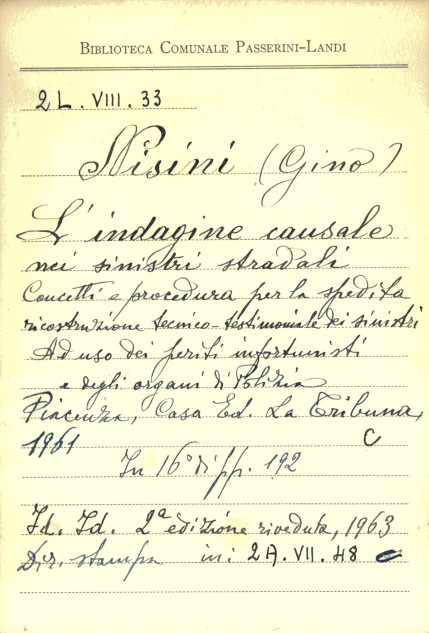 BIBLIOTECA COMUNALE PASSERINI-LANDI
2 L. VIII. 33
Nisini (Gino)
L'indagine causale
nei sinistri stradali
Concetti e procedura per la spedita
ricostruzione tecnico-testimoniale dei sinistri
Ad uso dei periti infortunisti
e degli organi di Polizia
Piacenza, Casa Ed. La Tribuna,
1961
C
In 16° di pp. 192
Id. Id. 2ª edizione riveduta, 1963
Dir. stampa in: 2A. VII. 48